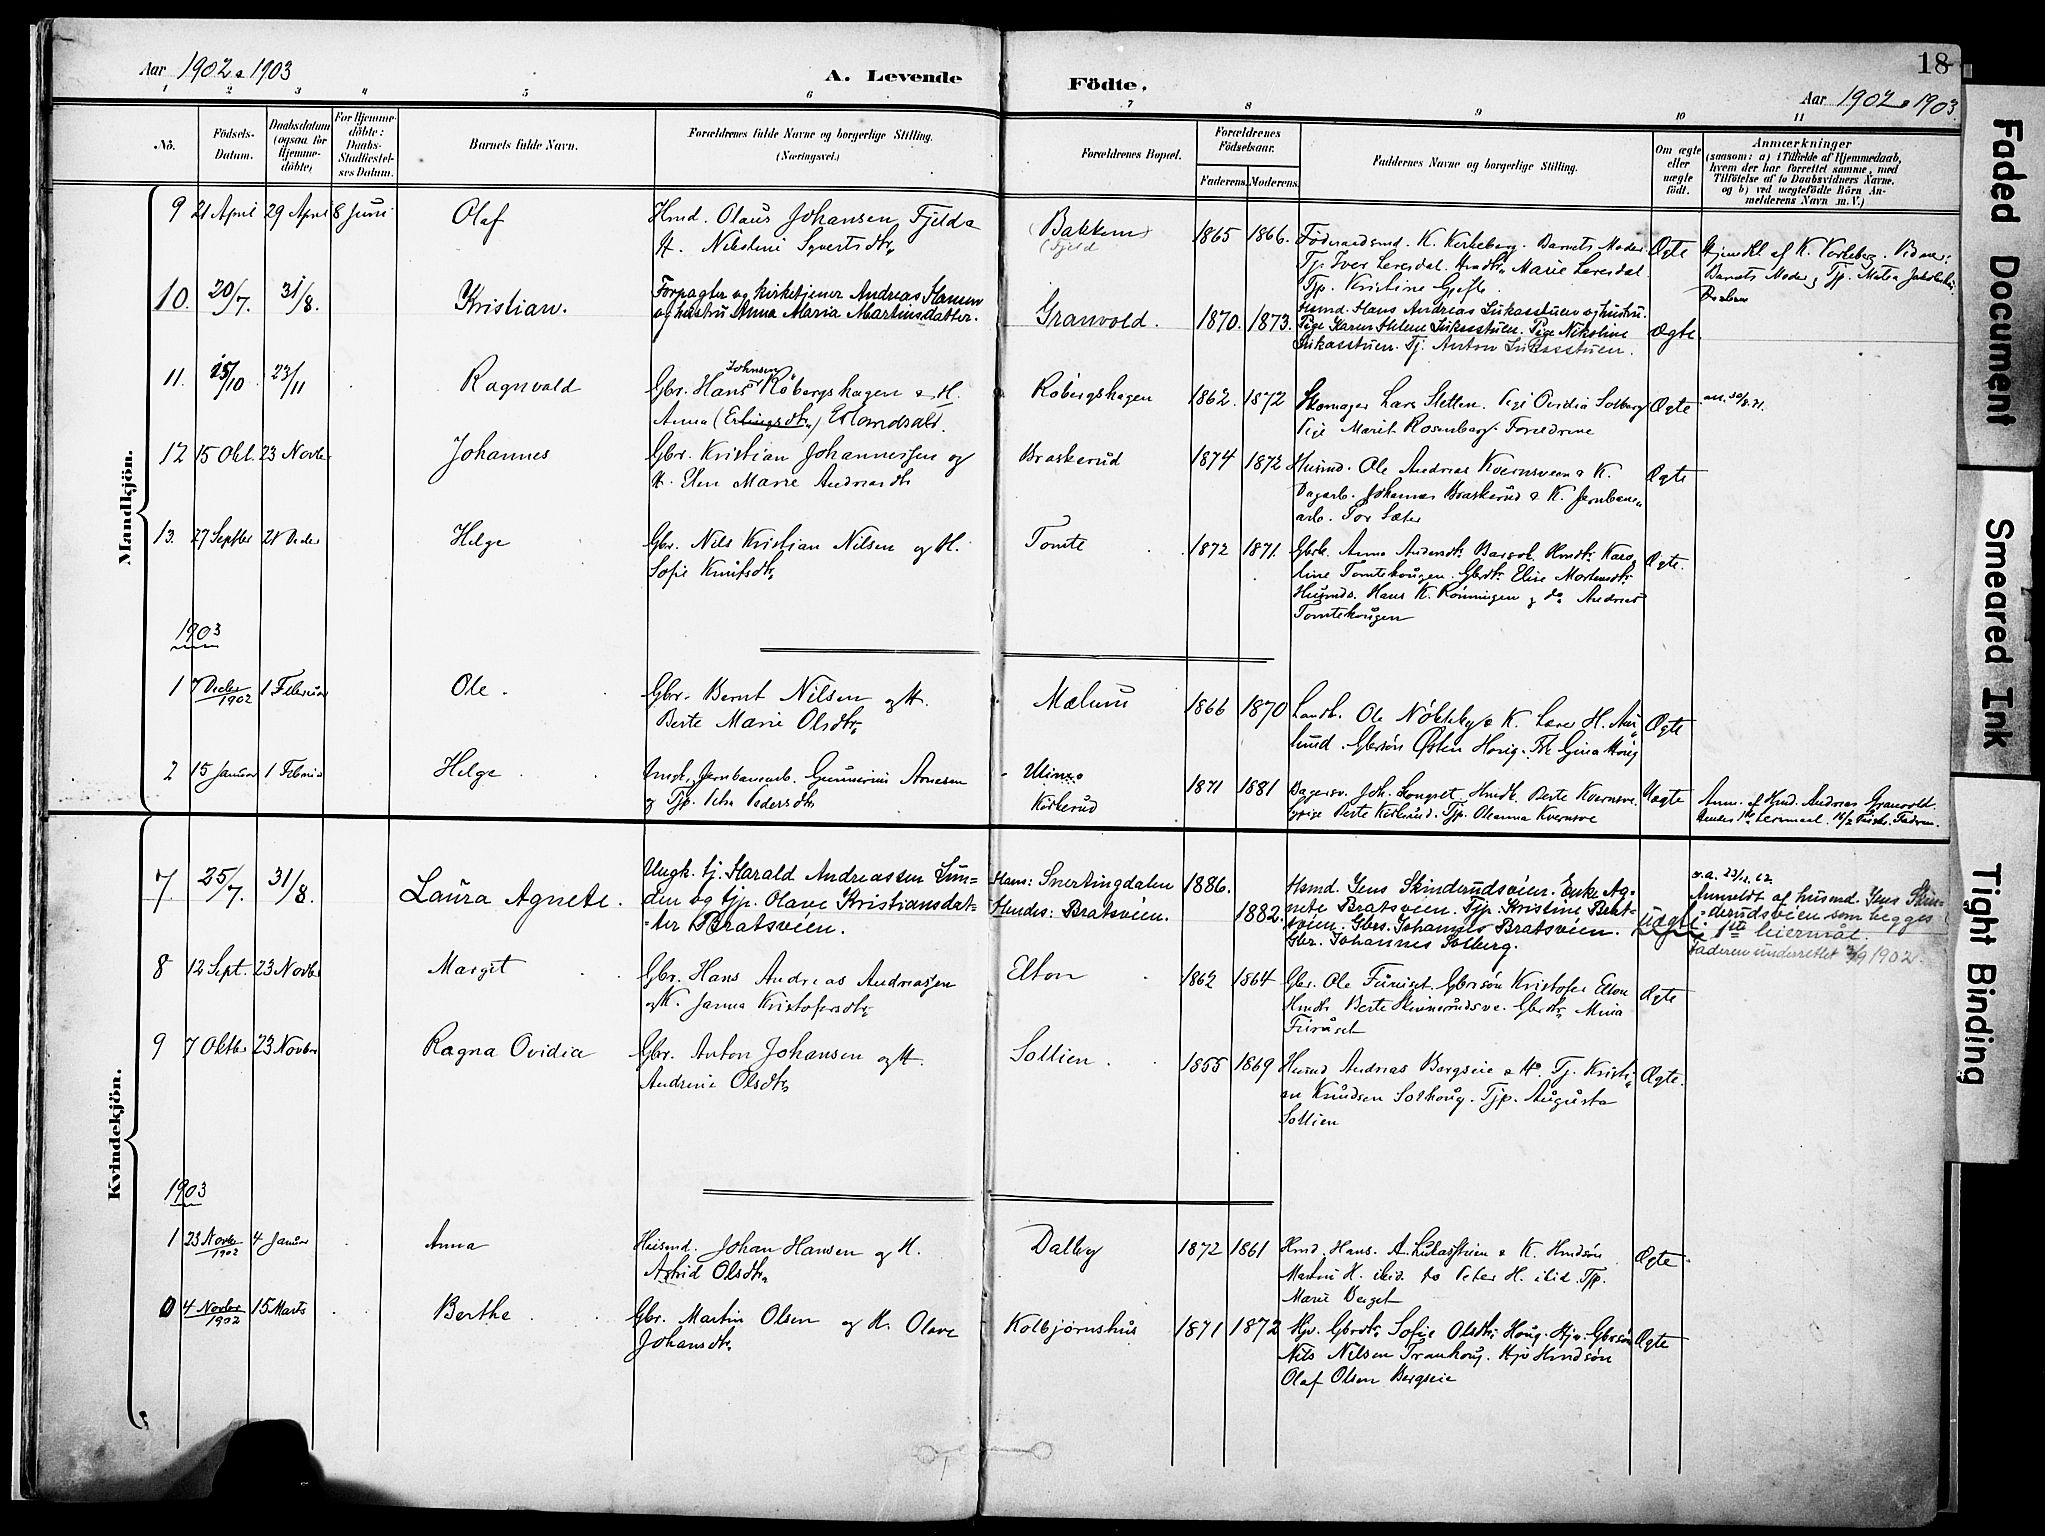 Aar 1902 & 1903
A. Levende
Födte.
Aar 1902 & 1903
18
1 2 3 4 5 6 7 8 9 10 11
Nö.
Födsels-Datum.
Daabsdatum (ogsaa for Hjemme-döbte)
For Hjemme-döbte: Daabs-Stadfæstel-ses Datum.
Barnets fulde Navn.
Forældrenes fulde Navne og borgerlige Stilling. (Næringsvei.)
Forældrenes Bopæl.
Forældrenes Födselsaar.
Faderens. Moderens.
Faddernes Navne og borgerlige Stilling.
Om ægte eller uægte födt.
Anmærkninger
(saasom: a) i Tilfælde af Hjemmedaab,
hvem der har forrettet samme, med
Tilföielse af to Daabsvidners Navne.
og b) ved uægtefödte Börn An-
melderens Navn m. V.)
Mandkjön.
9 21 April 29 April 8 Juni Olaf
Hmd. Olaus Johansen Fjelda
H. Nikoline Syvertsdtr
Bakken
(Fjeld
1865 1866.
Föderaadsmd. K. Kirkeberg. Barnets Moder
Tj. Iver Leresdal. Hmdtr Marie Leresdal
Tjp. Kristine Gjefle.
Ægte
Hjemdbt af K. Vidner:
Barnets Moder & Tjp.
10. 20/7. 31/8. Kristian.
Forpagter og kirketjener Andreas Hansen
og hustru Anna Maria Martinsdatter.
Granvold. 1870. 1873.
Husmd. Hans Andreas Lukasstuen og hustru.
Pige Karen Helene Lukasstuen. Pige Nikoline
Lukasstuen. Tj. Anton Lukasstuen.
Ægte.
11. 15/10 23/11 Ragnvald
Johnsen
Gbr. Hans Röbergshagen & H.
Anna (Erlingsdtr)
Röbergshagen 1862. 1872
Skomager Lars Sletten. Pige Ovidia Solberg
Pige Marit Rosenberg. Foreldrene
Ægte
12 15 Okt. 23 Novbr Johannes
Gbr. Kristian Johannessen og
H. Elen Marie Andreasdtr
Braskerud 1874 1872
Husmd. Ole Andreas Kvernsveen & K.
Dagarb. Johannes Braskerud & K. Jernbane
arb. Tor Sæter
Ægte
13. 27 Septbr 21 Decbr Helge
Gbr. Nils Kristian Nilsen og H.
Sofie Knutsdtr
Tomte 1872 1871.
Gbrk. Anna Andersdtr. Hmdtr Karo
line Tomtehougen. Gbrdtr Elise Mortensdtr
Husmds. Hans K. Rönningen & do Andreas
Tomtehougen
Ægte.
1903
1 7 Decbr 1902 1 Februar Ole.
Gbr. Bernt Nilsen og H.
Berte Marie Olsdtr
Mælum 1866 1870
Landh. Ole Nökleby & K. Lars H. Aas
lund. Gbrsön Østen Houg. Frk Gina Houg
Ægte
2 15 Januar 1 Februar Helge
Ungk. Jernbanearb. Gunnerius Arnesen
og Tjp. Petra Pedersdtr
Kirkerud
1871 1881
Bagersv. Joh. Longset. Hmdtr. Berte Kvernsve
Berte Kirkerud. Tjp. Oleanna Kvernsve
Uægte
Anm. af Hmd. Andreas Granvold.
Hendes 1ste Leiermaal.
Kvindekjön.
7. 25/7. 31/8. Laura Agnete.
Ungk. tj. Harald Andreassen Lun=
den og tjp. Olave Kristiansdat=
=ter Bratsvéien.
Hans: Snertingdalen
Hendes: Bratsvéien.
1886. 1882.
Husmd. Jens Skinderudsvéien. Enke Ag=
nete Bratsvéien. Tjp. Kristine Brat=
svéien. Gbrs. Johannes Bratsvéien.
Gbr. Johannes Solberg.
Uægte
Anmeldt af husmd. Jens Skin=
=derudsvéien som begges
1ste leiermål.
Faderen underrettet 3/9 1902.
8 12 Sept. 23 Novbr Margit
Gbr. Hans Andreas Andreassen
og H. Janna Kristofersdtr
Elton 1862 1864
Gbr. Ole Furuset. Gbrsön Kristofer Elton
Hmdtr Berte Skinnerudsve. Gbrdtr Mina
Furuset
Ægte
9 7 Oktbr 23 Novbr Ragna Ovidia
Gbr. Anton Johansen og H.
Andrine Olsdtr
Sollien. 1855 1869
Husmd Andreas Bergseie & H. Tj. Kristi
an Knudsen Solhoug. Tjp. Augusta
Sollien
Ægte.
1903
1 23 Novbr 1902 4 Januar Anna
Husmd. Johan Hansen og H.
Astrid Olsdtr
Dalby 1872 1861
Hmd. Hans A. Lukasstuen & K. Hmdsön
Martin H. ibid. to Peter H. ibid. Tjp.
Marie Berget
Ægte
4 Novbr 1902 15 Marts Berthe
Gbr. Martin Olsen og H. Olave
Johansdtr
Kolbjørnshus 1871 1872
Hjv. Gbrdtr Sofie Olsdtr Houg. Hjv. Gbrsön
Nils Nilsen Tranhoug. Hjv Hmdsön
Olaf Olsen Bergseie
Ægte
Faded Document
Smeared Ink
Tight Binding